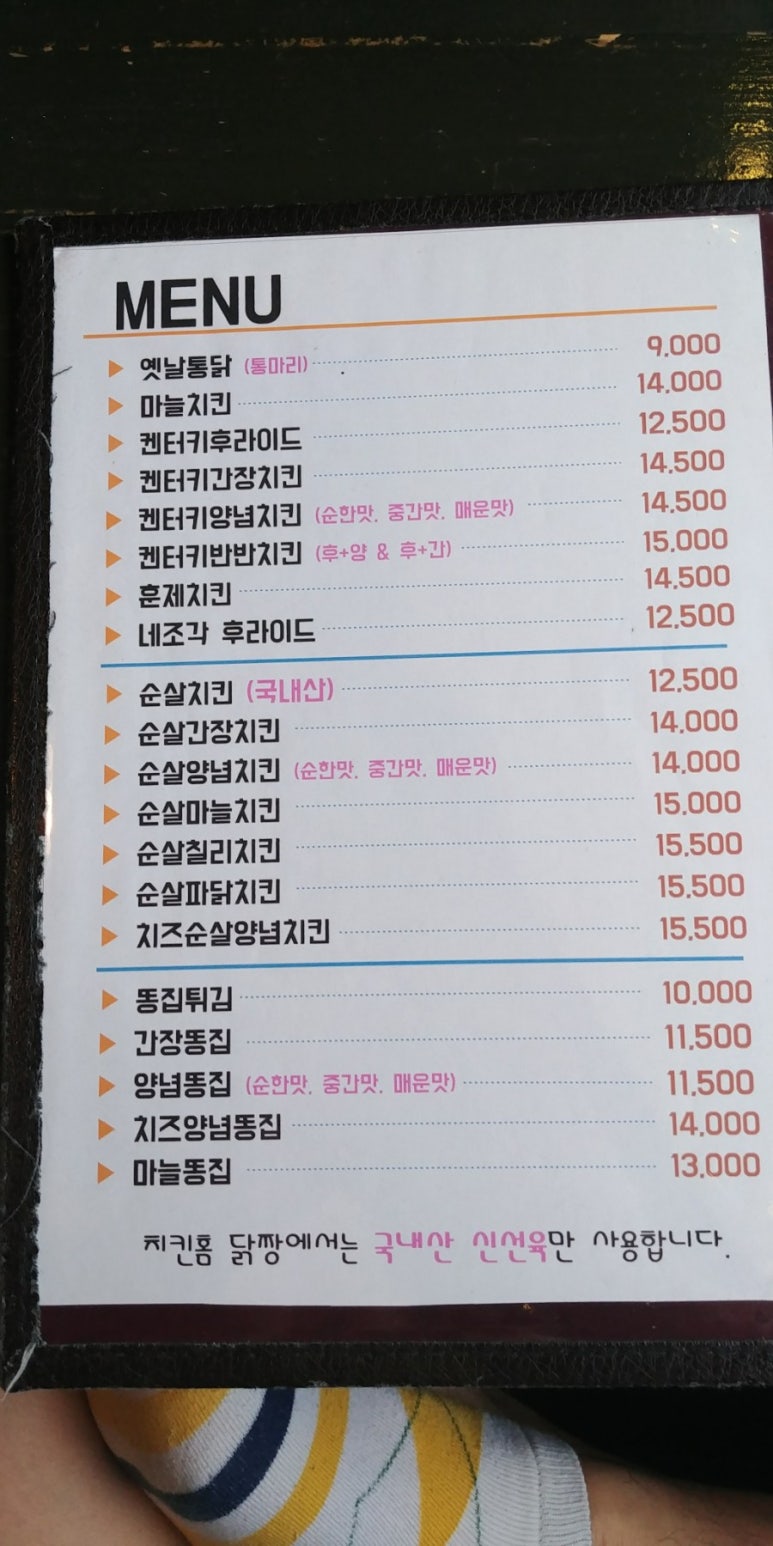 MENU
옛날통닭 (통마리) 9,000
마늘치킨 14,000
켄터키후라이드 12,500
켄터키간장치킨 14,500
켄터키양념치킨 (순한맛, 중간맛, 매운맛) 14,500
켄터키반반치킨 (후+양 & 후+간) 15,000
훈제치킨 14,500
네조각 후라이드 12,500
순살치킨 (국내산) 12,500
순살간장치킨 14,000
순살양념치킨 (순한맛, 중간맛, 매운맛) 14,000
순살마늘치킨 15,000
순살칠리치킨 15,500
순살파닭치킨 15,500
치즈순살양념치킨 15,500
똥집튀김 10,000
간장똥집 11,500
양념똥집 (순한맛, 중간맛, 매운맛) 11,500
치즈양념똥집 14,000
마늘똥집 13,000
치킨홈 닭짱에서는 국내산 신선육만 사용합니다.